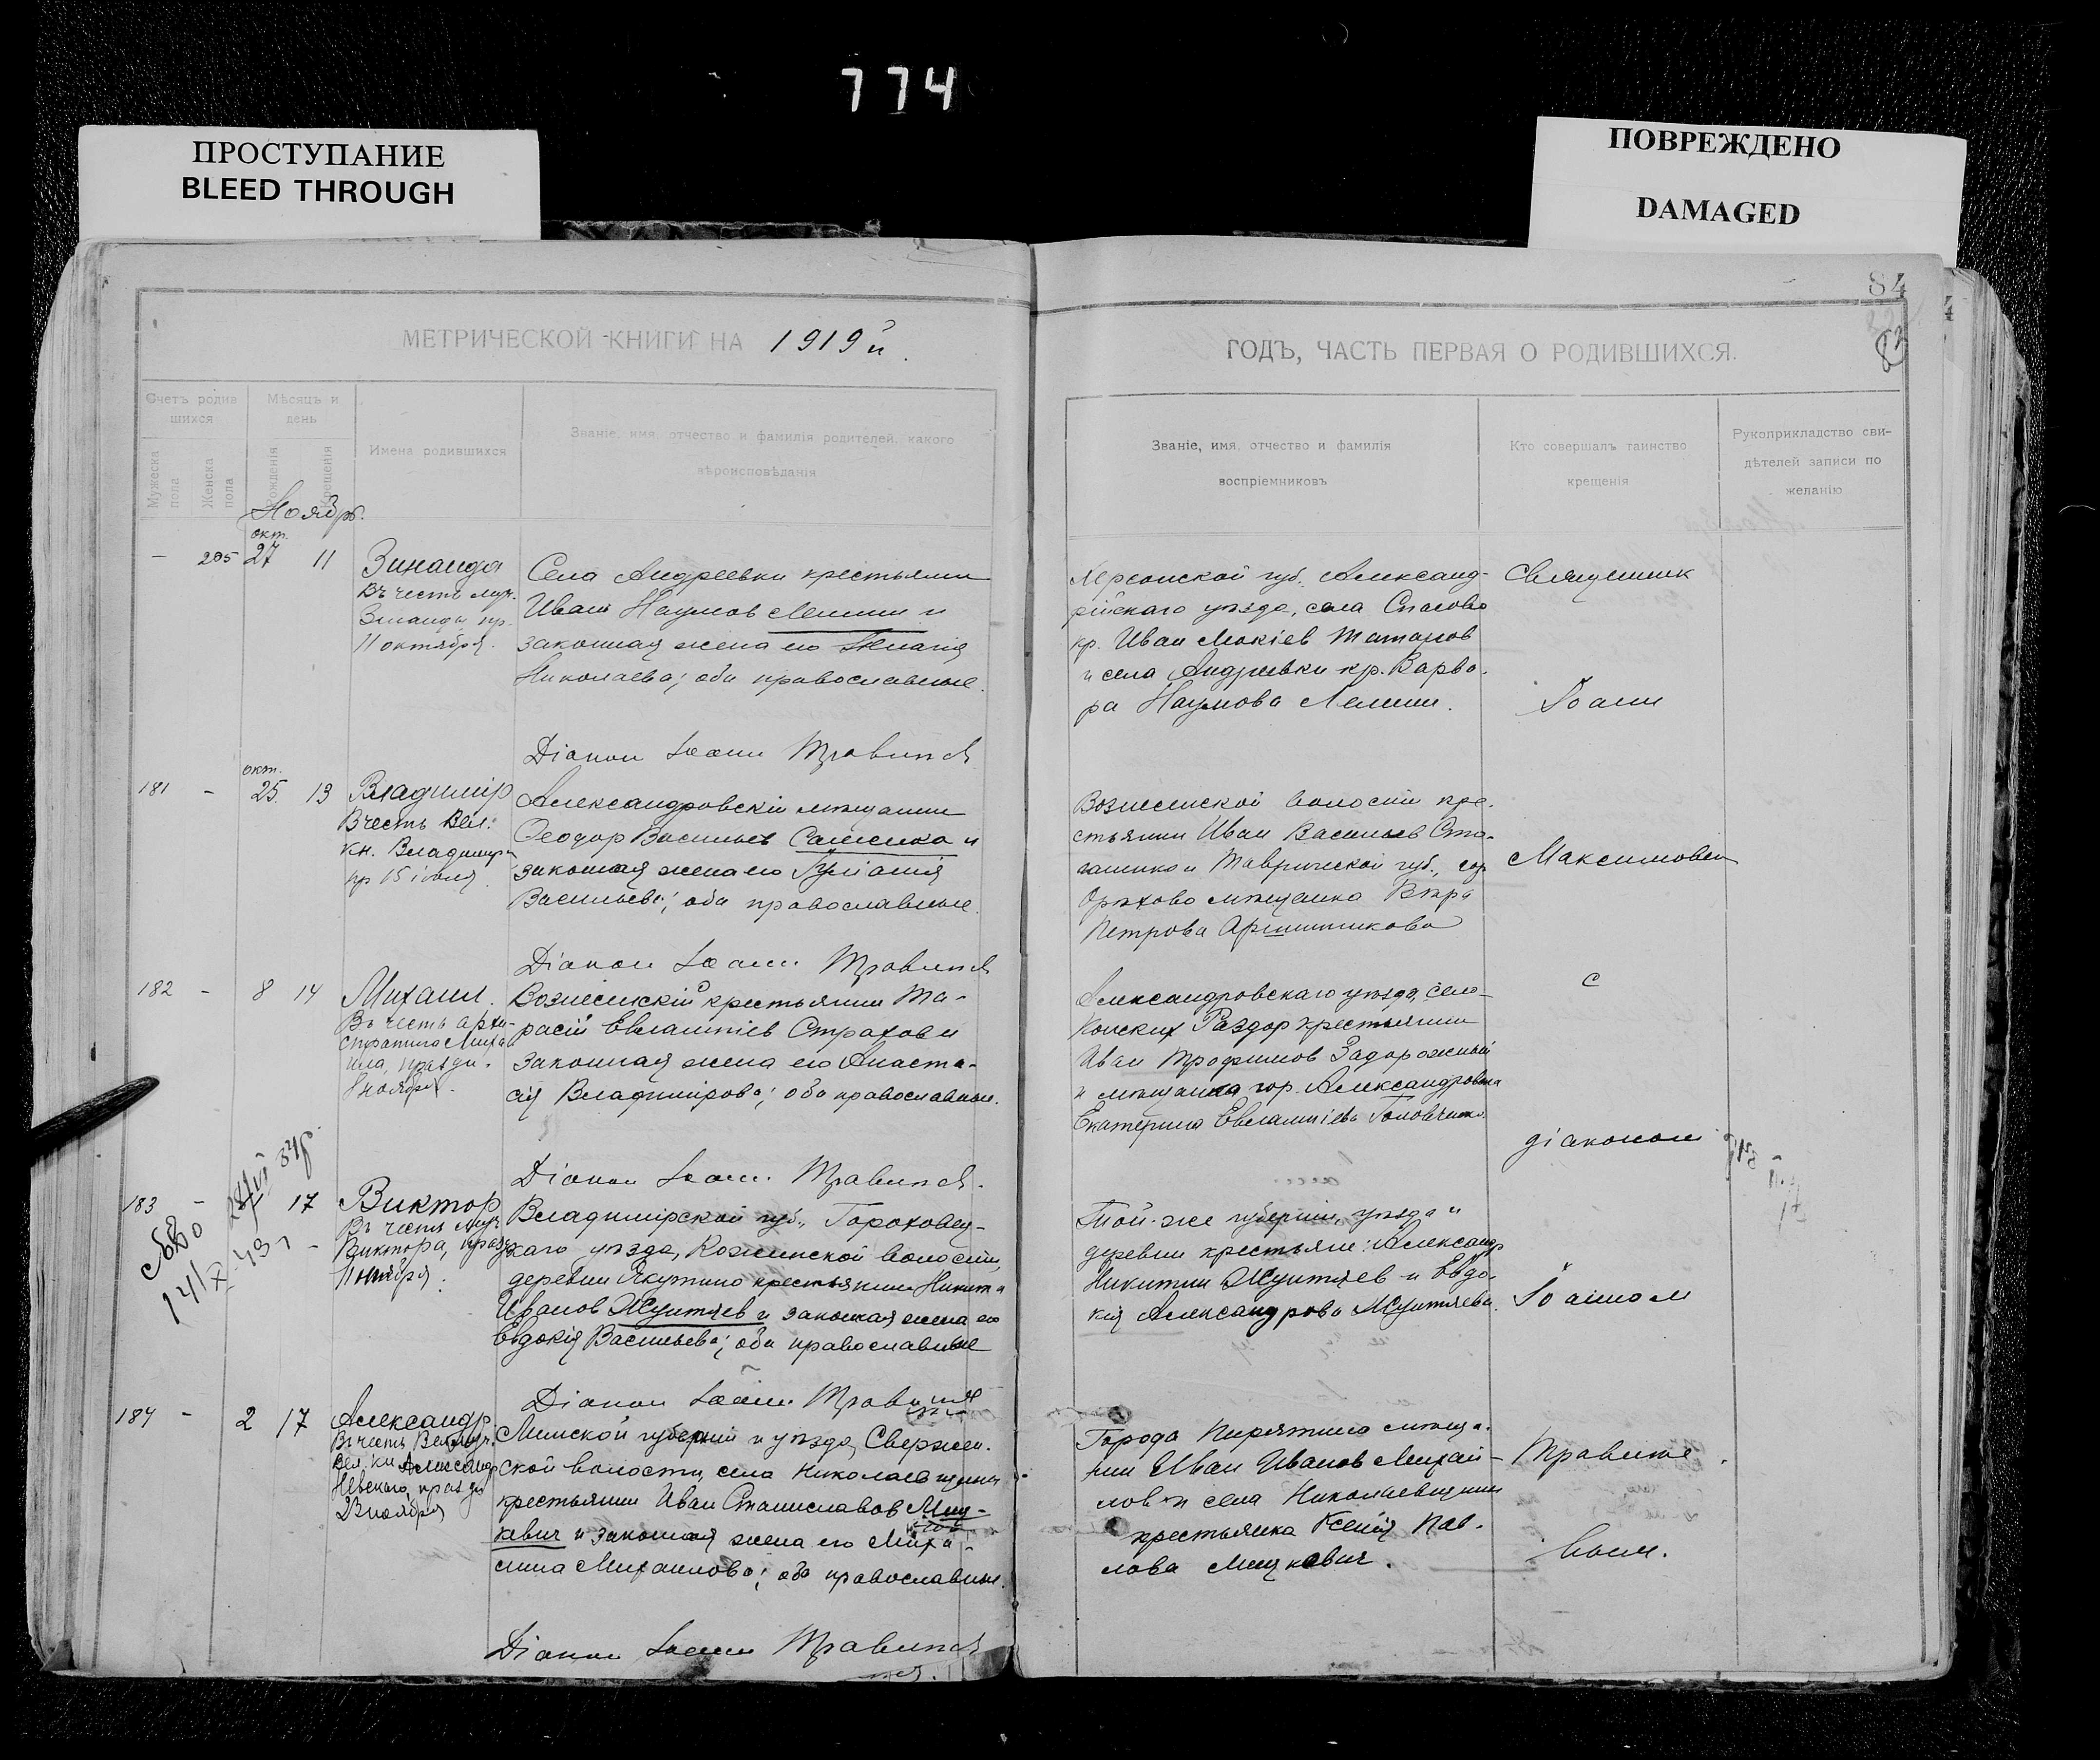 774
ПРОСТУПАНИЕ
BLEED THROUGH
ПОВРЕЖДЕНО
DAMAGED
84
МЕТРИЧЕСКОЙ КНИГИ НА 1919й.
ГОДЪ, ЧАСТЬ ПЕРВАЯ О РОДИВШИХСЯ.
Счетъ родив
шихся
Мужеска
пола
Женска
пола
Мѣсяцъ и
день
Рожденія
Крещенія
Имена родившихся
Званіе, имя, отчество и фамилія родителей, какого
вѣроисповѣданія
Званіе, имя, отчество и фамилія
воспріемниковъ
Кто совершалъ таинство
крещенія
Рукоприкладство сви-
дѣтелей записи по
желанію
Ноябрь.
окт.
— 205 27 11
Зинаида
Въ честь муч.
Зинаиды пр.
11 октября.
Села Андреевки крестьянин
Иван Наумов и
законная жена его
Николаева; оба православные.
Діакон Іоанн Травинскій
Херсонской губ. Александ-
рійскаго уѣзда, села Спасово
кр. Иван Мокіев Татаров
и села Андреевки кр. Варва-
ра Наумова
Священник
Іоанн
окт.
181 - 25. 13
Владимір
В честь Вел.
кн. Владимира
пр 15 іюля
Александровскій мѣщанин
Ѳеодор Васильев Саленко и
законная жена его Іуліанія
Васильева; оба православные.
Діакон Іоанн Травинскій
Вознесенской волости кре-
стьянин Иван Васильев
и Таврической губ., гор
Орѣхова мѣщанка Вѣра
Петрова
Максимович
182 - 8 14
Михаил.
Въ честь архи-
стратига Миха
ила, праздн.
8 ноября.
Вознесенскій крестьянин Та-
расій Евлампіев Страхов и
законная жена его Анаста-
сія Владимірова; оба православные.
Діакон Іоанн Травинскій.
Александровскаго уѣзда, села
Конских Раздор крестьянин
Иван Трофимов Задорожный
и мѣщанка гор. Александровска
Екатерина Евлампіева
с
діаконом
183 - 17
Виктор
Въ честь муч
Виктора, празд
11 ноября.
Владимірской губ., Гороховец-
каго уѣзда, Кожинской волости,
деревни Якутино крестьянин Никита
Иванов и законная жена его
Евдокія Васильева; оба православные
Діакон Іоанн Травинскій
Той-же губерніи, уѣзда и
деревни крестьяне: Александр
Никитин и Евдо-
кія Александрова
Іоанном
184 - 2 17
Александр
Въ честь
Вел. кн Александ
Невскаго, праздн
23 ноября
Минской губерніи и уѣзда, Свержен-
ской волости, села Николаевщины
крестьянин Иван Станиславов Миц-
кевич и законная жена его
Михаилова; оба православные.
Діакон Іоанн Травинскій
Города Пирятина мѣща-
нин Иван Иванов Михай-
лов и села Николаевщины
крестьянка Ксенія Пав-
лова Мицкевич.
Травинс
ким.